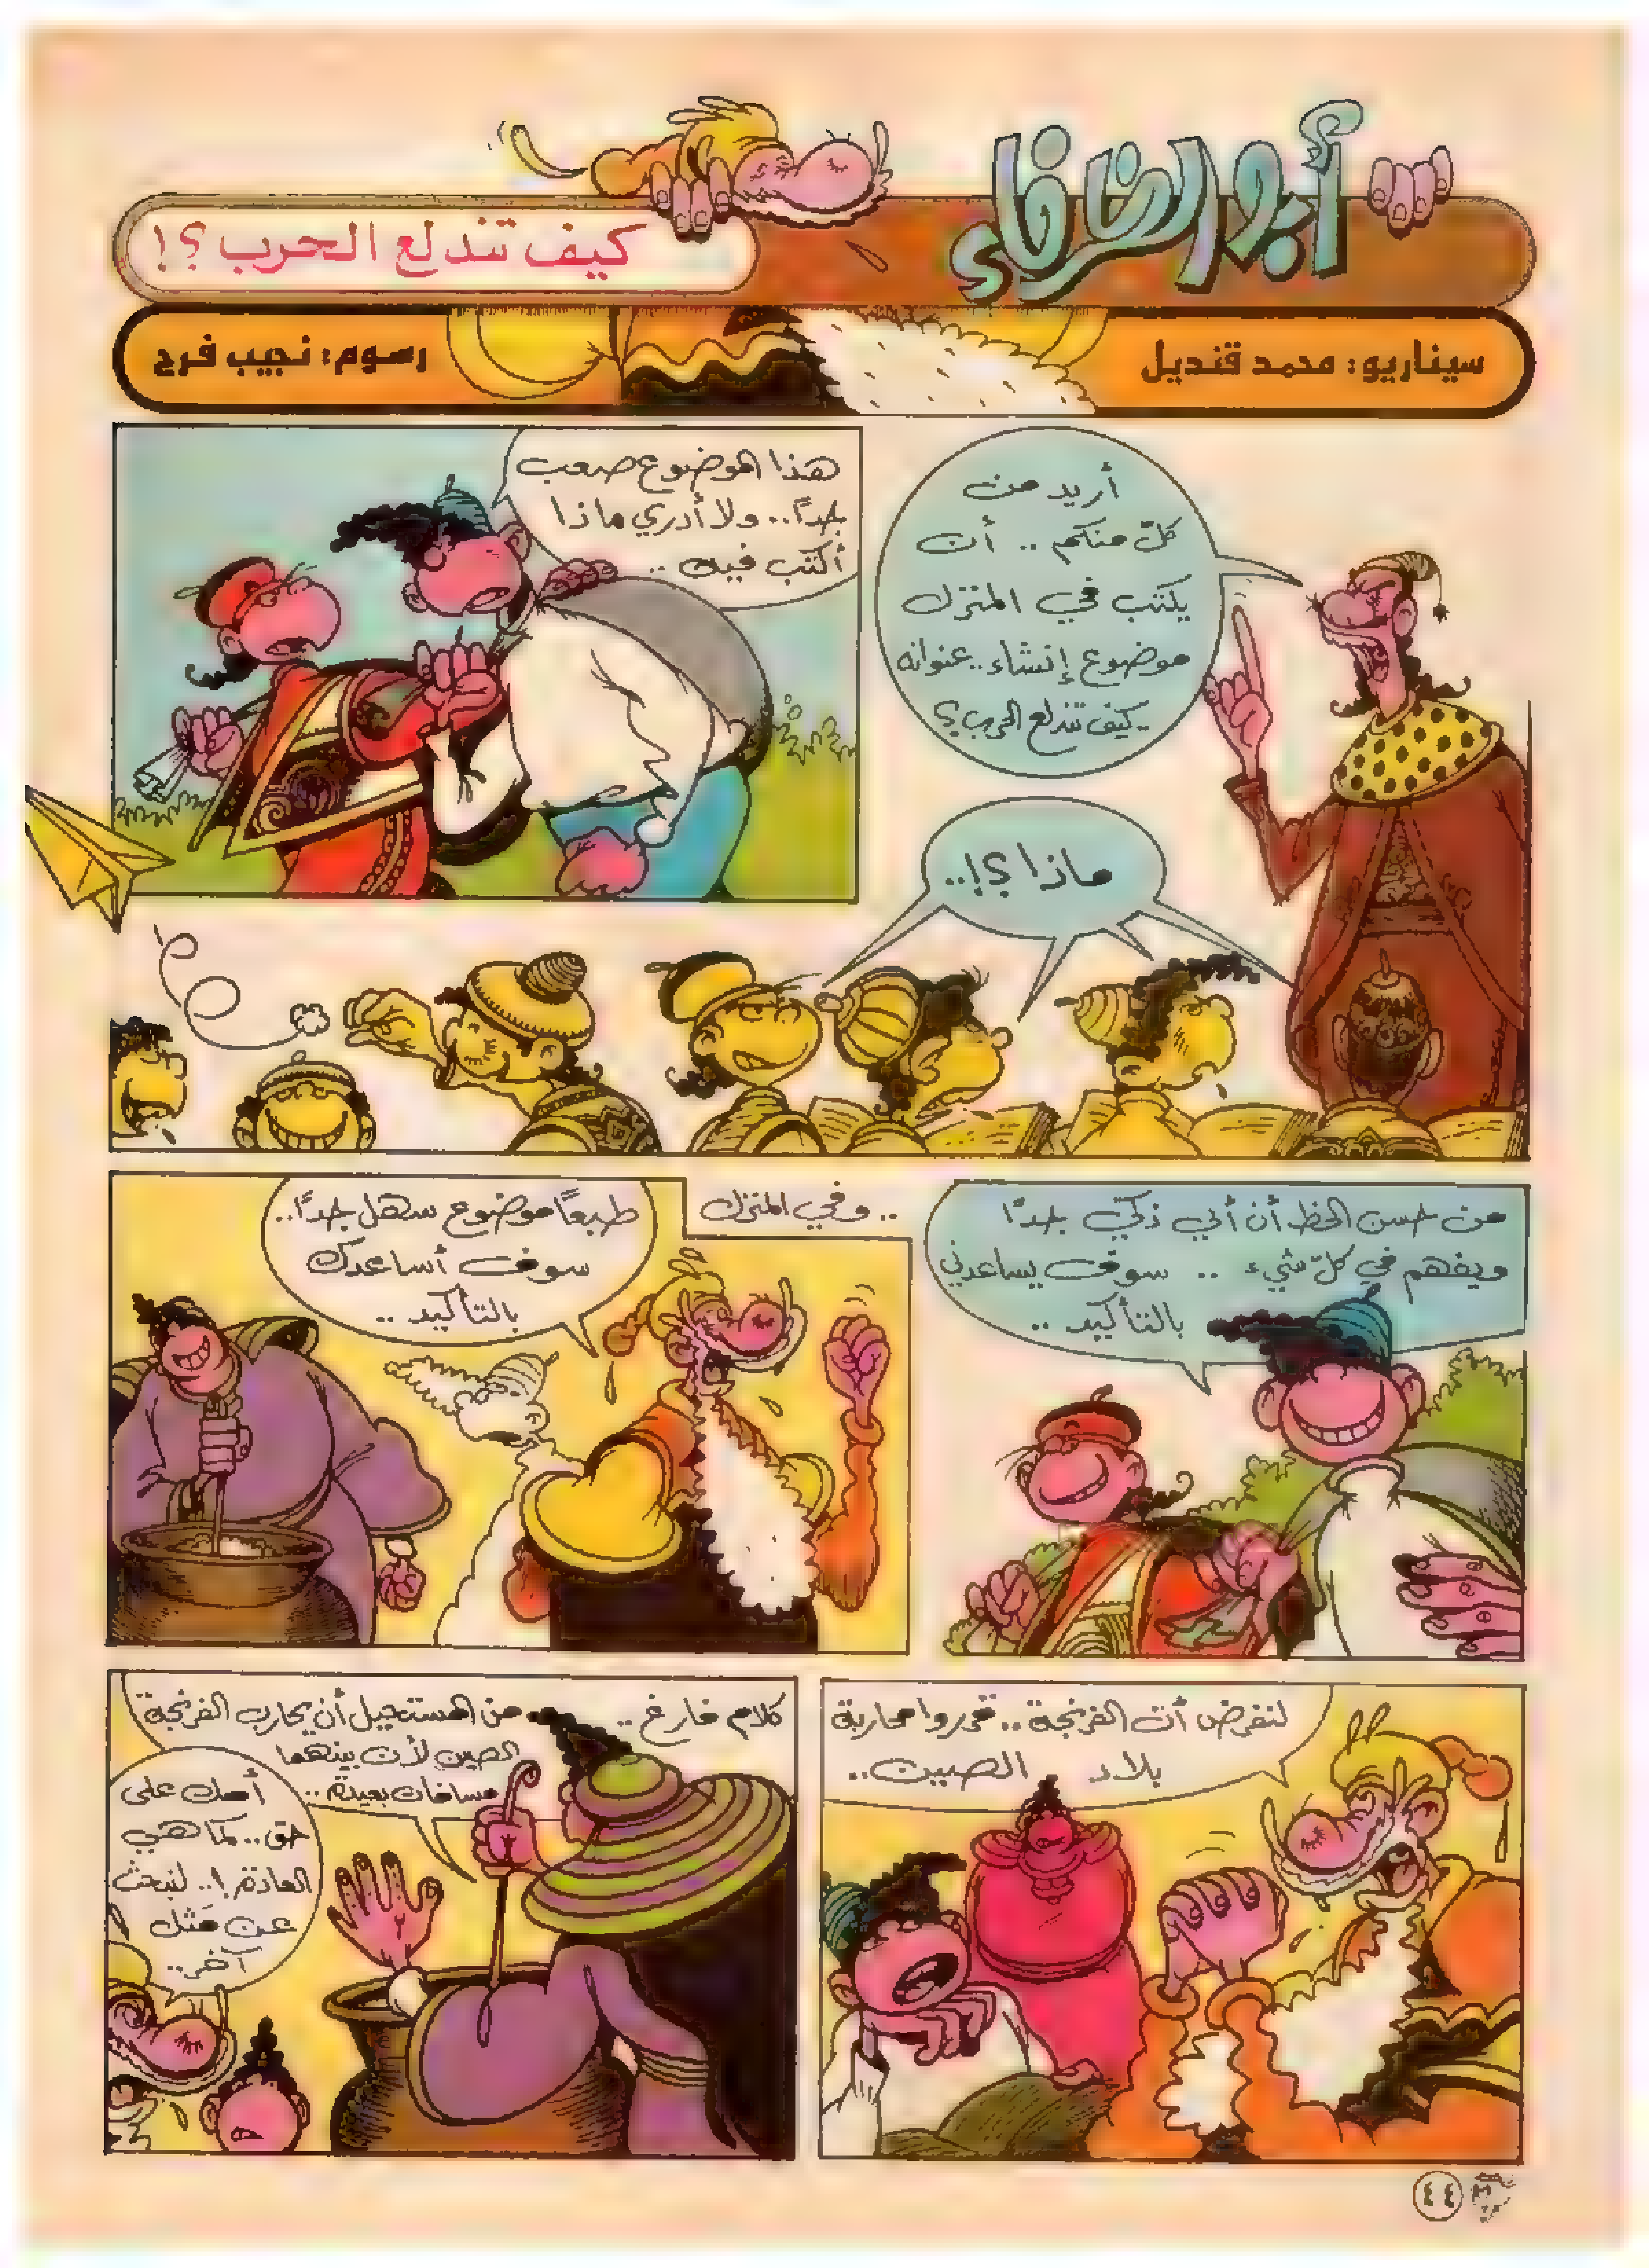 أبو الظرفاء
كيف تندلع الحرب؟!
سيناريو: محمد قنديل
رسوم: نجيب فرح
أريد من
كلّ منكم .. أن
يكتب في المنزل
موضوع إنشاء.. عنوانه
.. كيف تندلع الحرب؟
ماذا؟!..
هذا الموضوع صعب
جداً.. ولا أدري ماذا
أكتب فيه ..
من حسن الحظ أن أبي ذكيّ جداً
ويفهم في كلّ شيء .. سوف يساعدني
بالتأكيد ..
.. وفي المنزل
طبعاً موضوع سهل جداً..
سوف أساعدك
بالتأكيد ..
لنفرض أن الفرنجة.. قرروا محاربة
بلاد الصين..
كلام فارغ .. من المستحيل أن يحارب الفرنجة
الصين لأن بينهما
مسافات بعيدة..
أمك على
حق.. كما هي
العادة!.. لنبحث
عن مثل
آخر..
٤٤